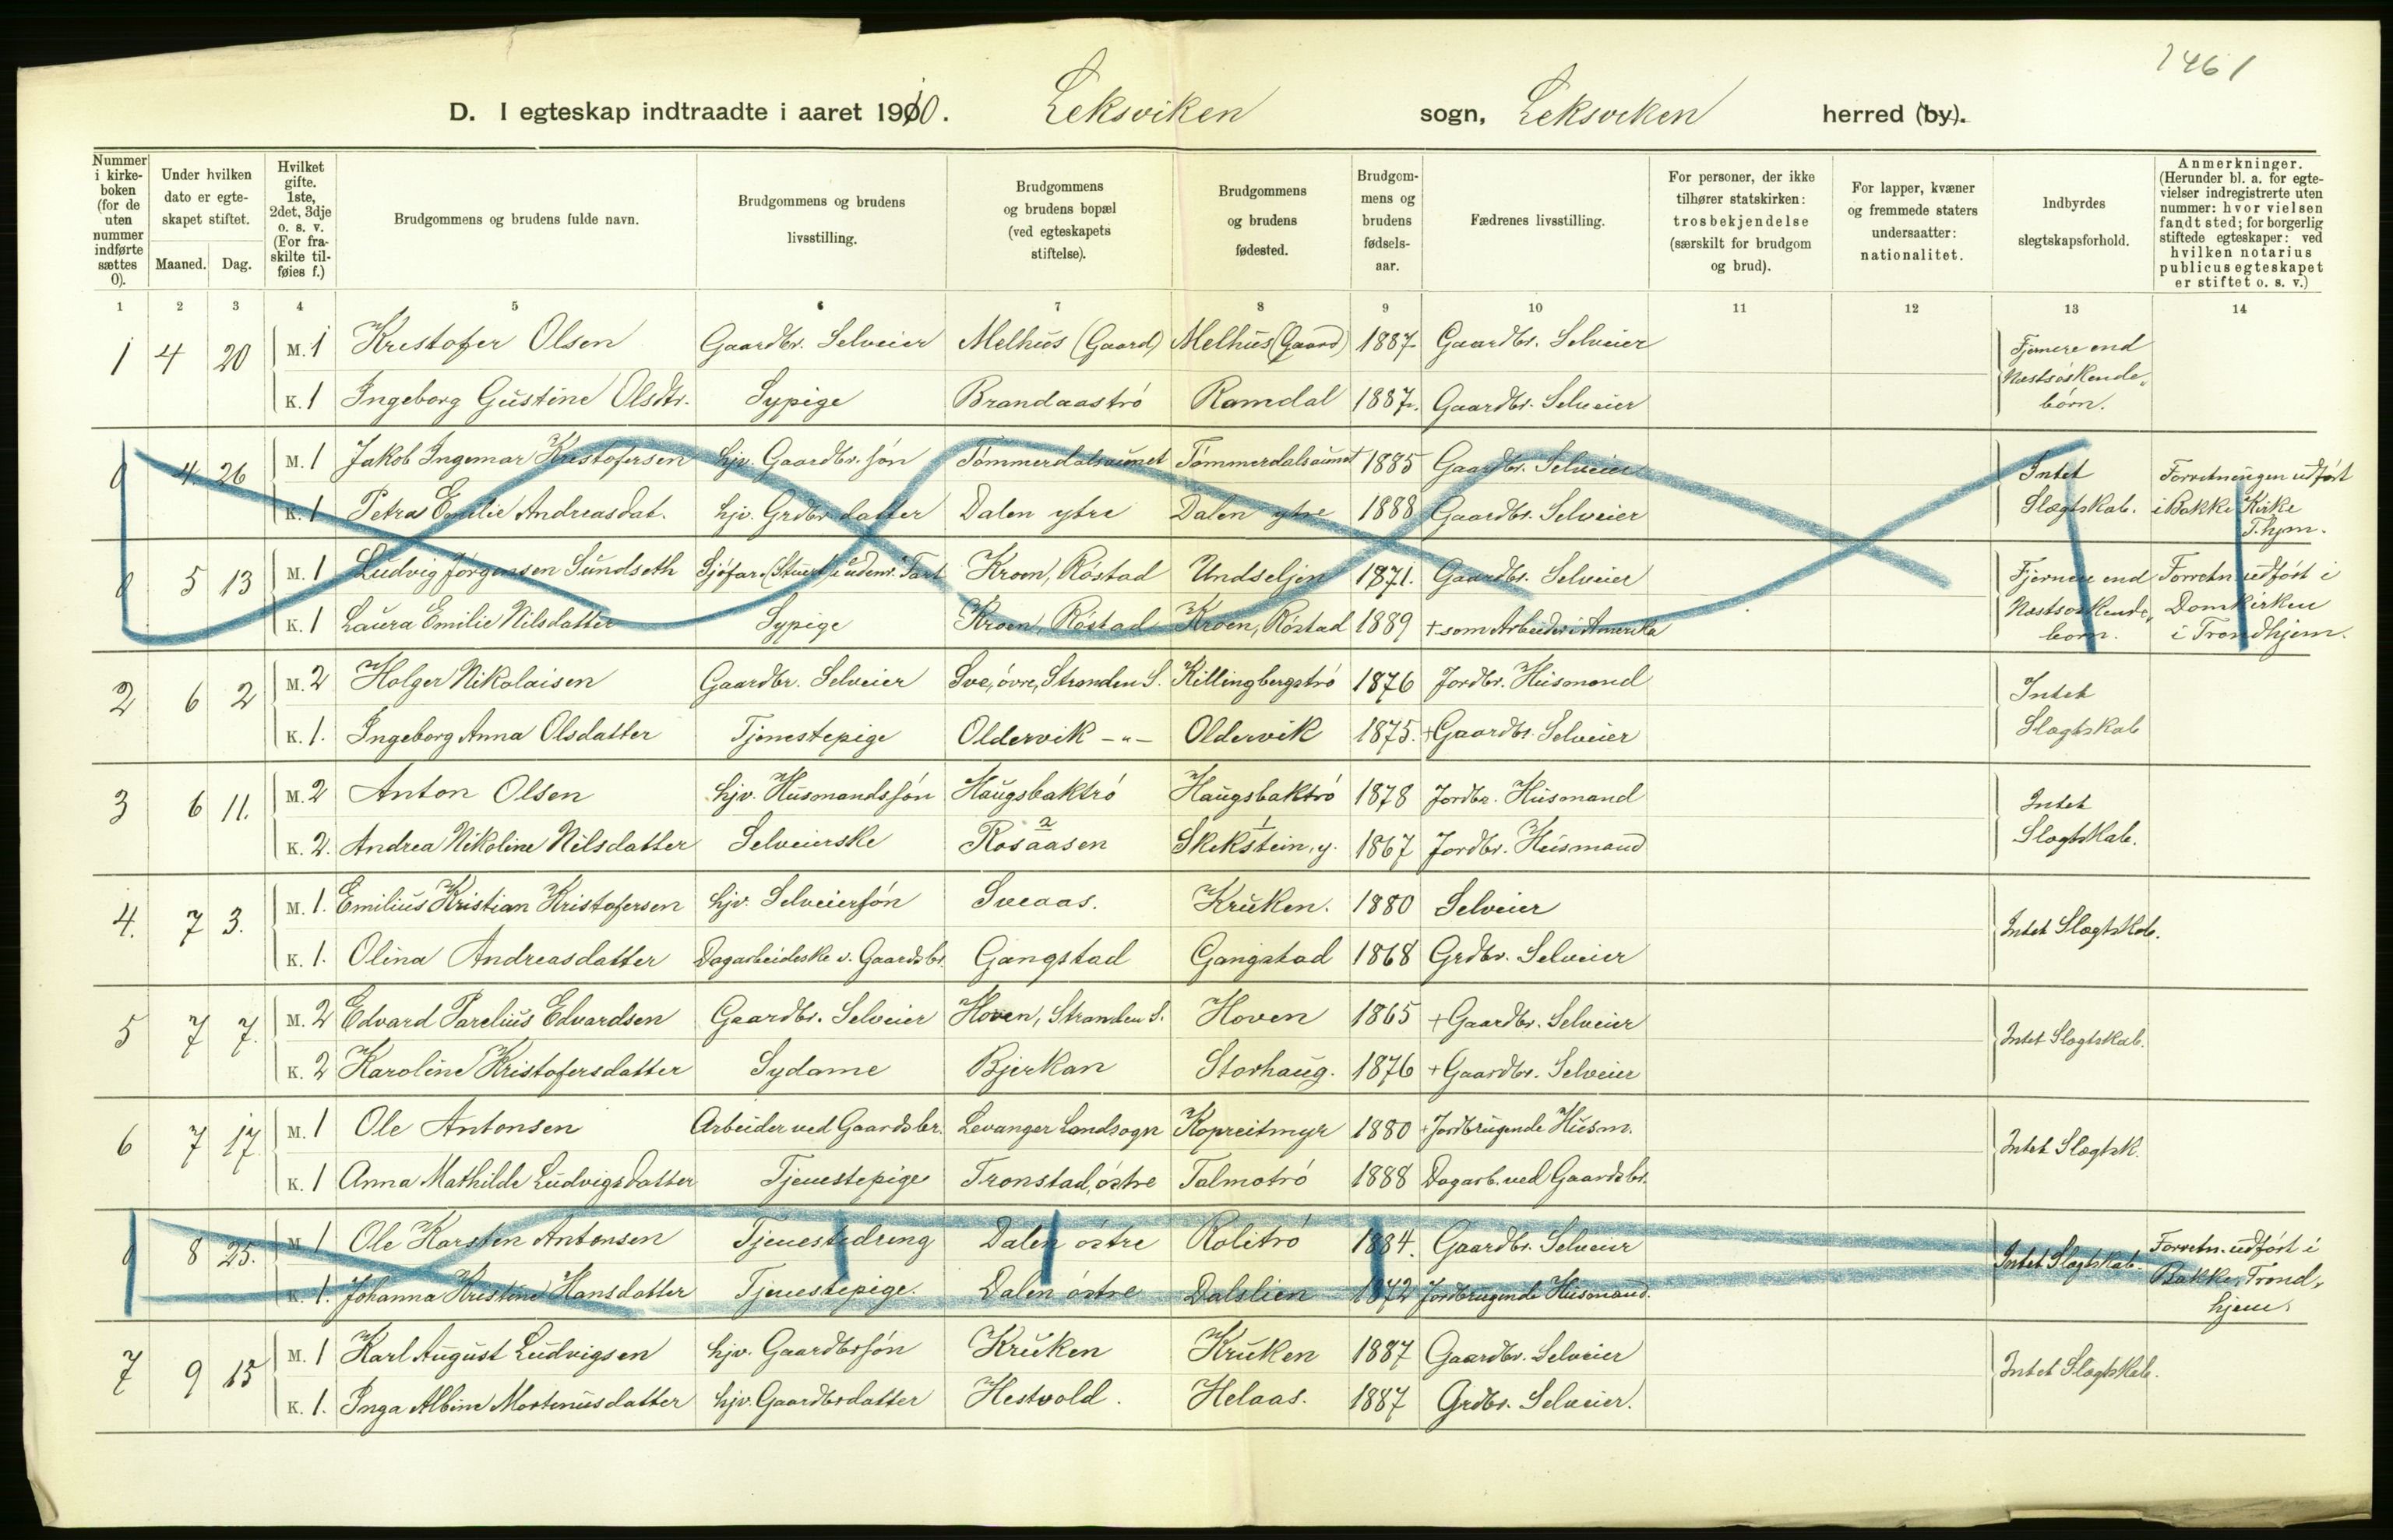 1461
D. I egteskap indtraadte i aaret 1910. Leksviken sogn, Leksviken herred (by).
Nummer i kirkeboken (for de uten nummer indførte sættes 0).
Under hvilken dato er egteskapet stiftet.
Maaned. Dag.
Hvilket gifte. 1ste, 2det, 3dje o. s. v. (For fraskilte tilføies f.)
Brudgommens og brudens fulde navn.
Brudgommens og brudens livsstilling.
Brudgommens og brudens bopæl (ved egteskapets stiftelse).
Brudgommens og brudens fødested.
Brudgommens og brudens fødselsaar.
Fædrenes livsstilling.
For personer, der ikke tilhører statskirken: trosbekjendelse (særskilt for brudgom og brud).
For lapper, kvæner og fremmede staters undersaatter: nationalitet.
Indbyrdes slegtskapsforhold.
Anmerkninger. (Herunder bl. a. for egtevielser indregistrerte uten nummer: hvor vielsen fandt sted; for borgerlig stiftede egteskaper: ved hvilken notarius publicus egteskapet er stiftet o. s. v.)
1 2 3 4 5 6 7 8 9 10 11 12 13 14
1 4 20 M. 1 Kristofer Olsen Gaardbr. Selveier Melhus (Gaard) Melhus (Gaard) 1887 Gaardbr. Selveier Fjernere end Næstsøskendebörn.
K. 1 Ingeborg Gustine Olsdtr. Sypige Brandaaströ Ramdal 1887. Gaardbr. Selveier
0 4 26 M. 1 Jakob Ingemar Kristofersen hjv. Gaardbr. sön Tömmerdalsaunet Tömmerdalsaunet 1885 Gaardbr. Selveier Intet Slægtskab. Forretningen udfört i Bakke Kirke T.hjem.
K. 1 Petra Emilie Andreasdat. hjv. Grdbr. datter Dalen ytre Dalen ytre 1888 Gaardbr. Selveier
0 5 13 M. 1 Ludvig Jörgensen Sundseth Sjöfar. (Stuert) i udenr. Fart Kroen, Röstad Undseljen 1871. Gaardbr. Selveier Fjernere end Næstsøskendebörn. Forretn. udfört i Domkirken i Trondhjem.
K. 1 Laura Emilie Nilsdatter Sypige Kroen, Röstad Kroen, Röstad 1889 + som Arbeider i Amerika
2 6 2 M. 2 Holger Nikolaisen Gaardbr. Selveier Sve, övre, Stranden S. Killingbergströ 1876 Jordbr. Husmand Intet Slægtskab
K. 1. Ingeborg Anna Olsdatter Tjenestepige Oldervik -"- Oldervik 1875. + Gaardbr. Selveier
3 6 11. M. 2 Anton Olsen hjv. Husmandssön Haugsbaktrö Haugsbaktrö 1878 Jordbr. Husmand Intet Slægtskab.
K. 2. Andrea Nikoline Nilsdatter Selveierske Rosaasen Skekstein, y. 1867 Jordbr. Husmand
4. 7 3. M. 1. Emilius Kristian Kristofersen hjv. Selveiersön Sveaas. Kruken. 1880 Selveier Intet Slægtskab.
K. 1. Olina Andreasdatter Dagarbeideske v. Gaardsbr. Gangstad Gangstad 1868 Grdbr. Selveier
5 7 7. M. 2 Edvard Parelius Edvardsen Gaardbr. Selveier Hoven, Stranden S. Hoven 1865 + Gaardbr. Selveier Intet Slægtskab.
K. 2 Karoline Kristofersdatter Sydame Bjerkan Storhaug. 1876 + Gaardbr. Selveier
6 7 17 M. 1 Ole Antonsen Arbeider ved Gaardsbr. Levanger Landsogn Kopreitmyr 1880 + Jordbrugende Husm. Intet Slægtsk.
K. 1 Anna Mathilde Ludvigsdatter Tjenestepige Tronstad, östre Talmoträ 1888 Dagarb. ved Gaardsbr.
0 8 25. M. 1 Ole Karsten Antonsen Tjenestedreng Dalen östre Rolitrö 1884. Gaardbr. Selveier Intet Slægtskab. Forretn. udfört i Bakke, Trondhjem.
K. 1. Johanna Kristine Hansdatter Tjenestepige. Dalen östre Dalslien 1872 Jordbrugende Husmand.
7 9 15 M. 1 Karl August Ludvigsen hjv. Gaardbrsön Kruken Kruken 1887 Gaardbr. Selveier Intet Slægtskab.
K. 1. Inga Albine Mortinusdatter hjv. Gaardbrdatter Hestvold. Helaas. 1887 Grdbr. Selveier.